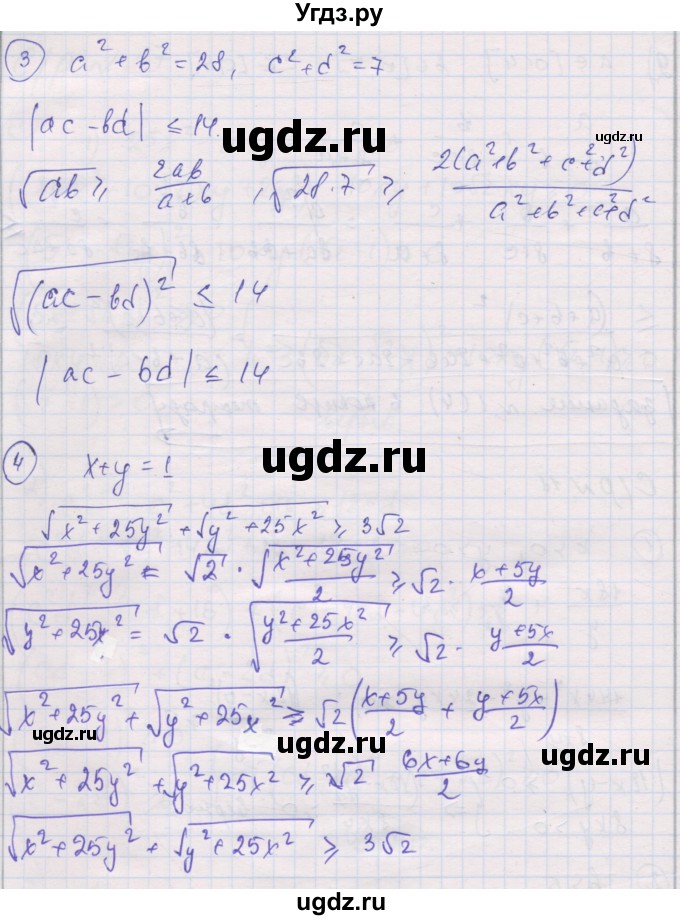 Угдз.ру
3 a² + b² = 28, c² + d² = 7
|ac - bd| ≤ 14.
ugdz.ru
√(ab) ≥ 2ab/(a+b), √(28·7) ≥ 2(a²+b²+c²+d²)/(a²+b²+c²+d²)
ugdz.ru
√((ac - bd)²) ≤ 14
ugdz.ru
|ac - bd| ≤ 14
ugdz.ru
4 x + y = 1
√(x² + 25y²) + √(y² + 25x²) ≥ 3√2
√(x² + 25y²) = √2 · √((x² + 25y²)/2) ≥ √2 · (x + 5y)/2
ugdz.ru
√(y² + 25x²) = √2 · √((y² + 25x²)/2) ≥ √2 · (y + 5x)/2
√(x² + 25y²) + √(y² + 25x²) ≥ √2((x + 5y)/2 + (y + 5x)/2)
ugdz.ru
ugdz.ru
√(x² + 25y²) + √(y² + 25x²) ≥ √2 (6x + 6y)/2
ugdz.ru
√(x² + 25y²) + √(y² + 25x²) ≥ 3√2
ugdz.ru